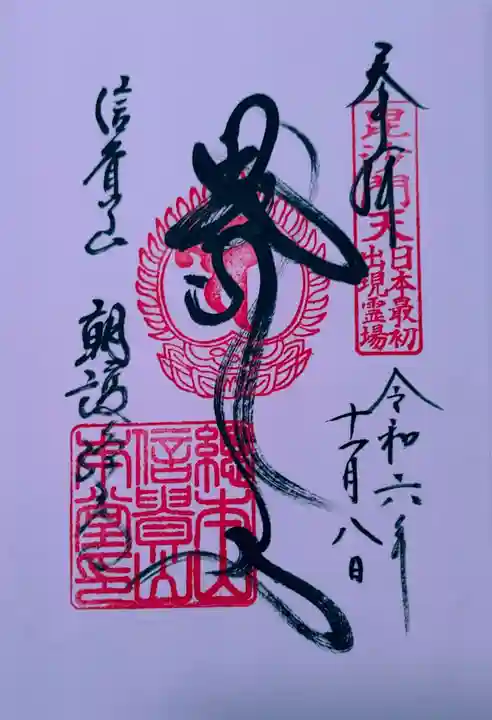 奉拝
毘沙門天
日本最初
出現霊場
令和六年
十一月八日
信貴山 朝護孫子寺
総本山
信貴山
本堂印